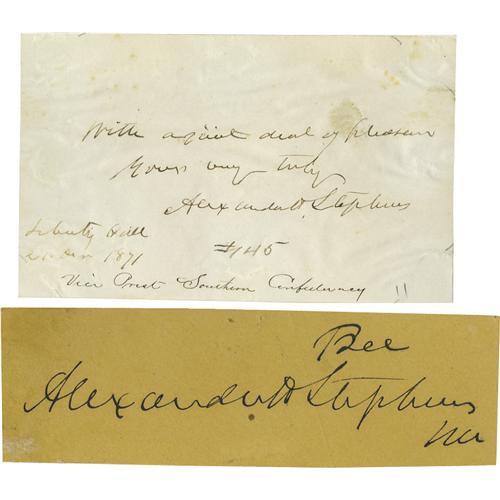 With a great deal of pleasure
Yours very truly
Alexander H. Stephens
Liberty Hall
1871
#145
Vice Prest Southern Confederacy
Rec
Alexander H Stephens